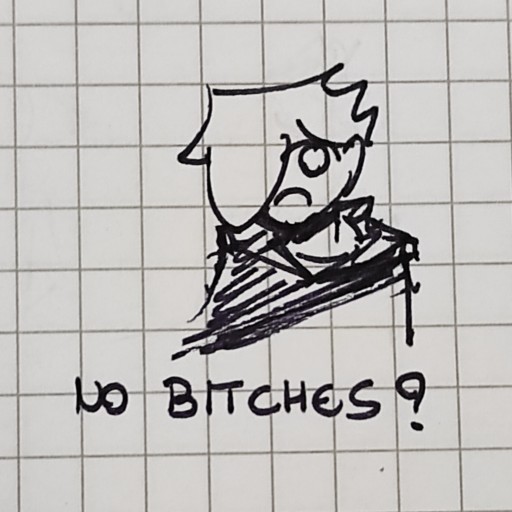 NO BITCHES?